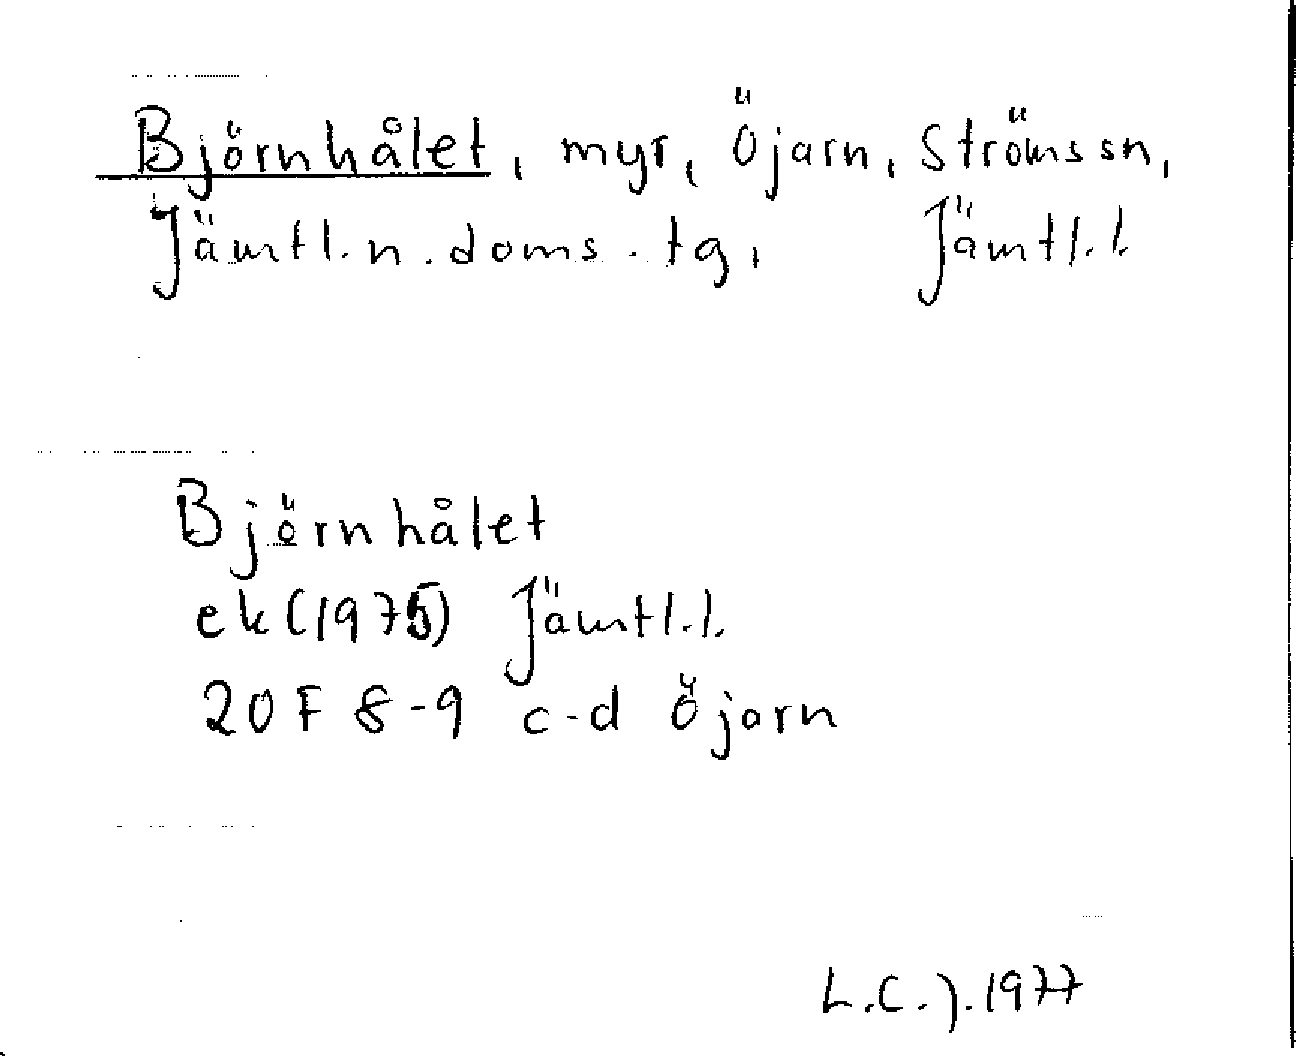 Björnhålet, myr, Öjarn, Ströms sn,
Jämtl. n. doms. tg, Jämtl. l.
Björnhålet
ek (1975) Jämtl. l.
20 F 8-9 c-d Öjarn
L.C.J. 1977